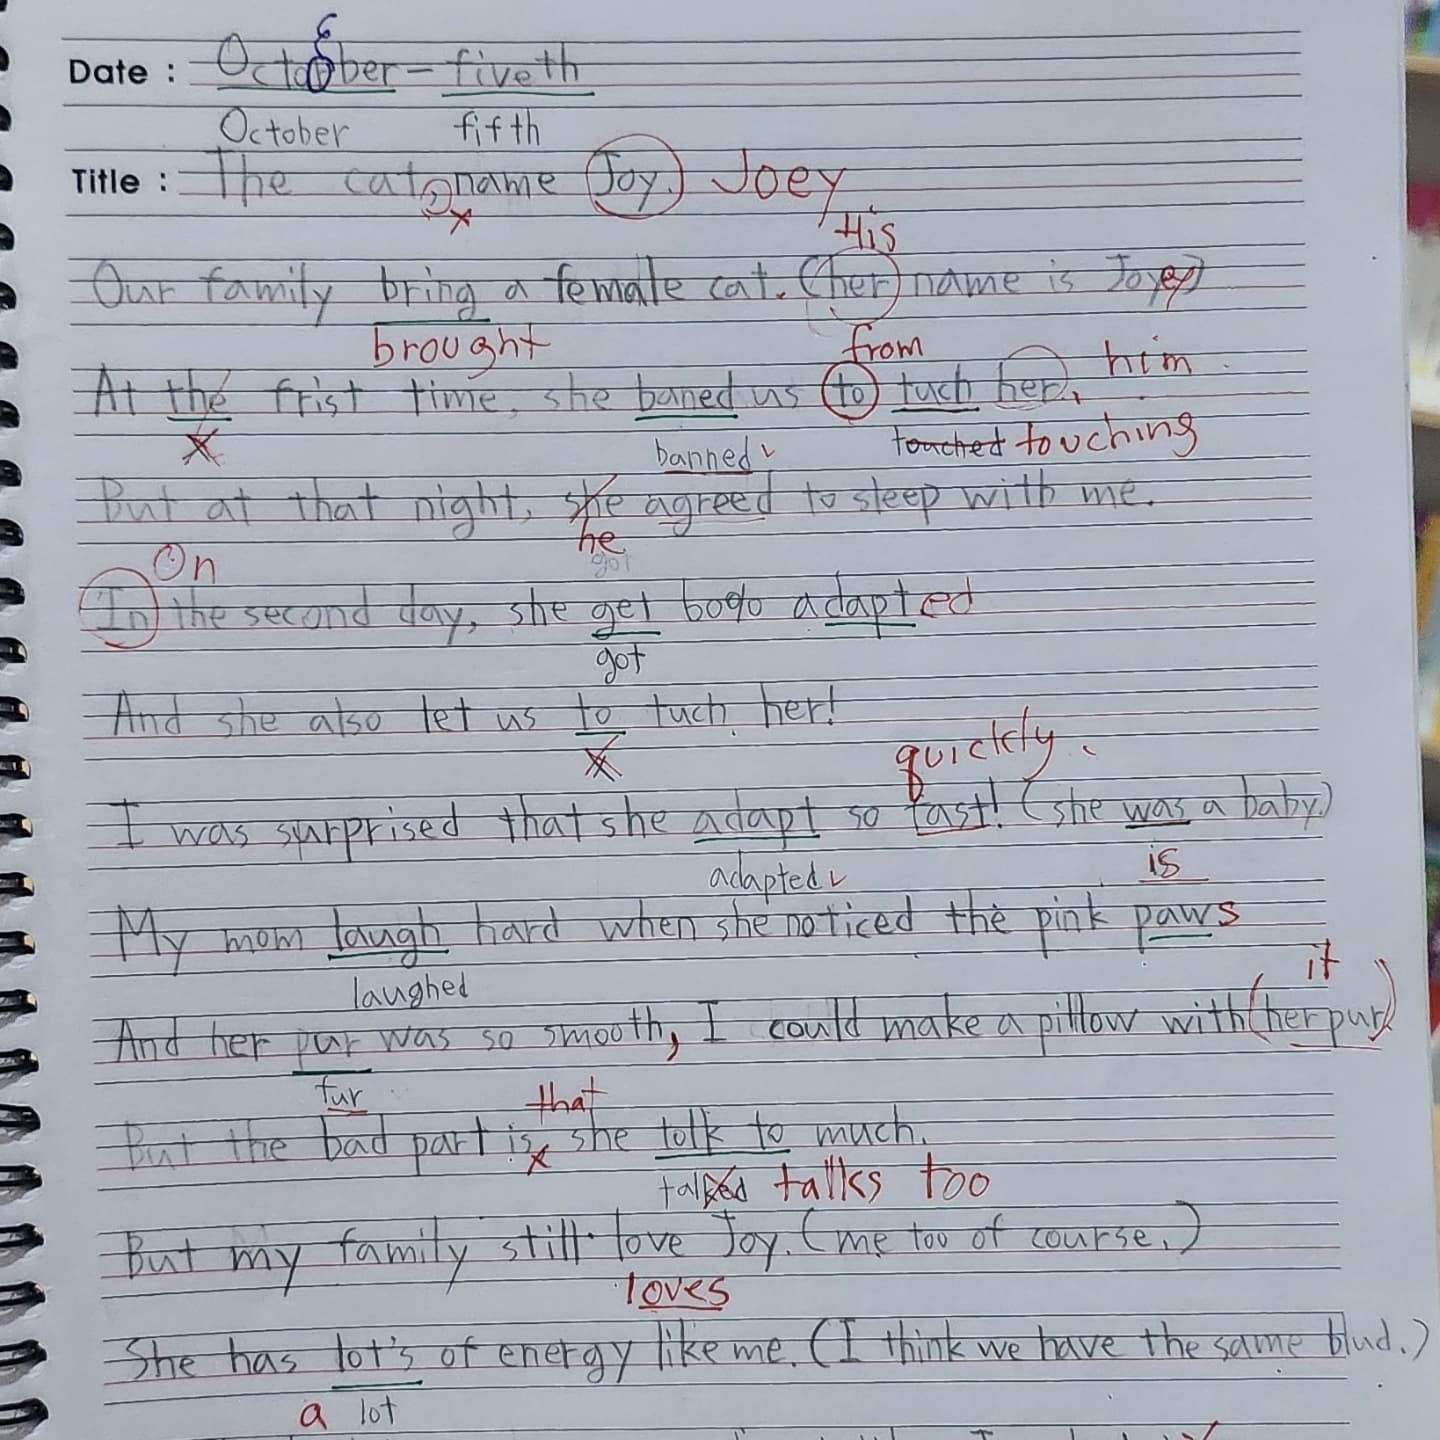 6
Date : October - fiveth
October fifth
Title : The cat, name Joy. Joey
x
His
Our family bring a female cat. (her name is Joyey)
brought from him
At the frist time, she baned us to tuch her,
x banned touched touching
But at that night, she agreed to sleep with me.
he
On got
In the second day, she get 60% adapted
got
And she also let us to tuch her!
x quickly.
I was surprised that she adapt so fast! (she was a baby.)
adapted is
My mom laugh hard when she noticed the pink paws
laughed it
And her pur was so smooth, I could make a pillow with (her pur)
fur that
But the bad part is she tolk to much.
x talked talks too
But my family still love Joy. (me too of course.)
loves
She has lot's of energy like me. (I think we have the same blud.)
a lot